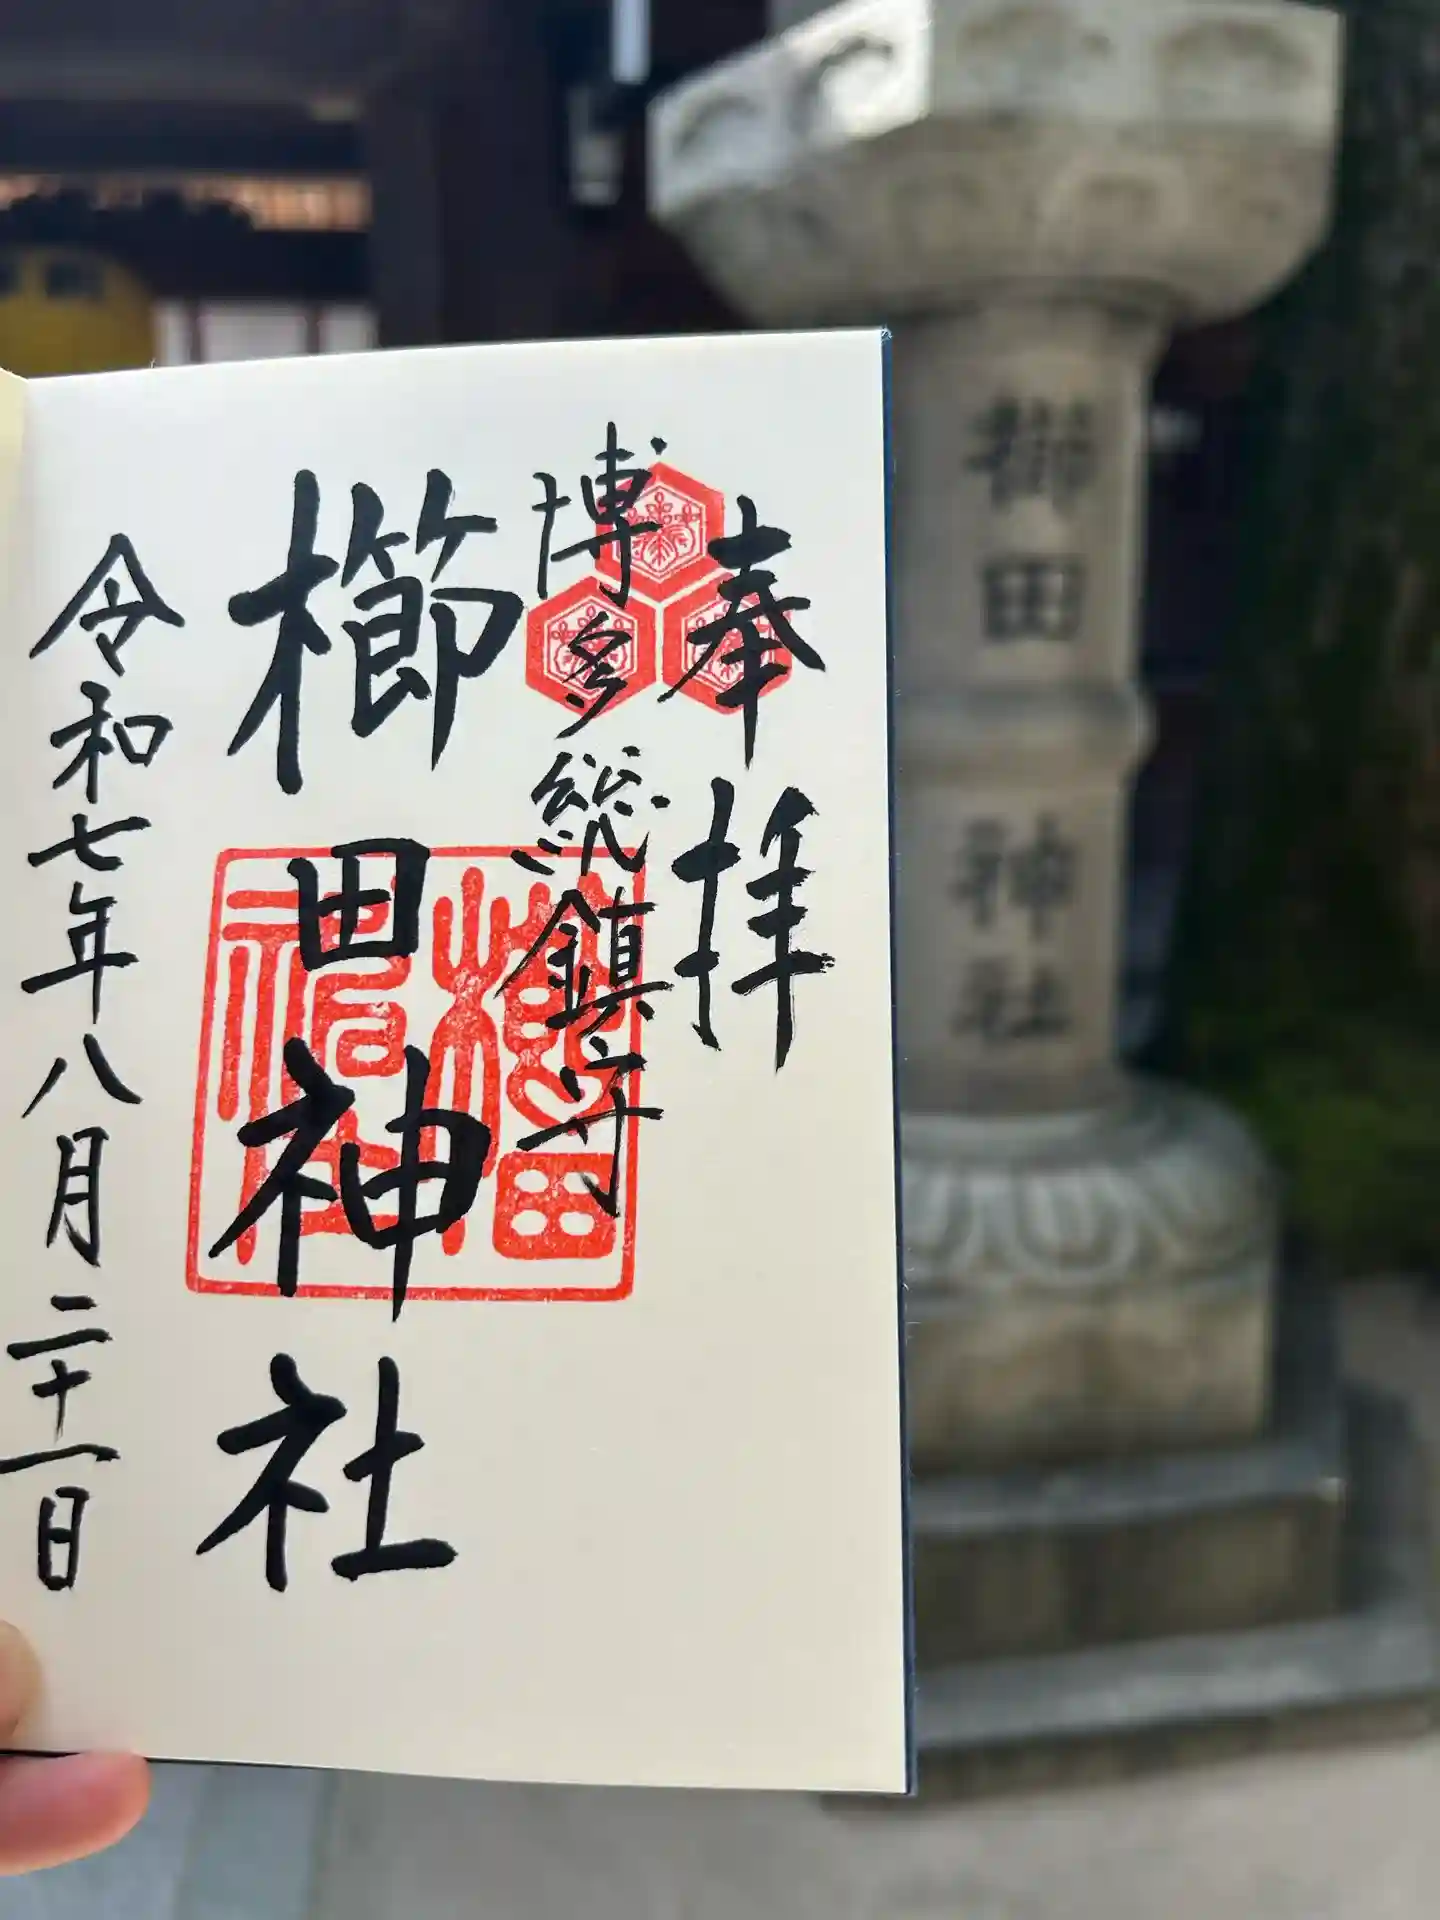 奉拝
博多総鎮守
櫛田神社
令和七年八月二十一日
櫛田
神社
櫛田
神社